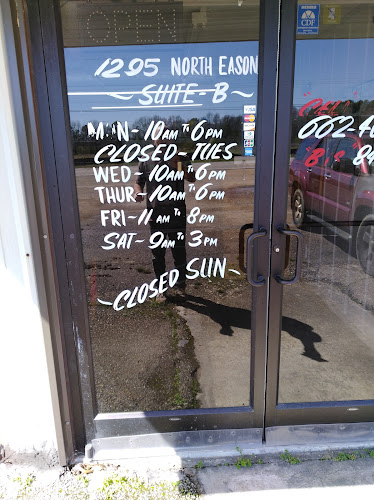 OPEN
1295 NORTH EASON
~ SUITE-B ~
MON-10AM TO 6PM
CLOSED-TUES
WED-10AM TO 6PM
THUR-10AM TO 6PM
FRI-11AM TO 8PM
SAT-9AM TO 3PM
~CLOSED SUN~
CDF
662-4
84